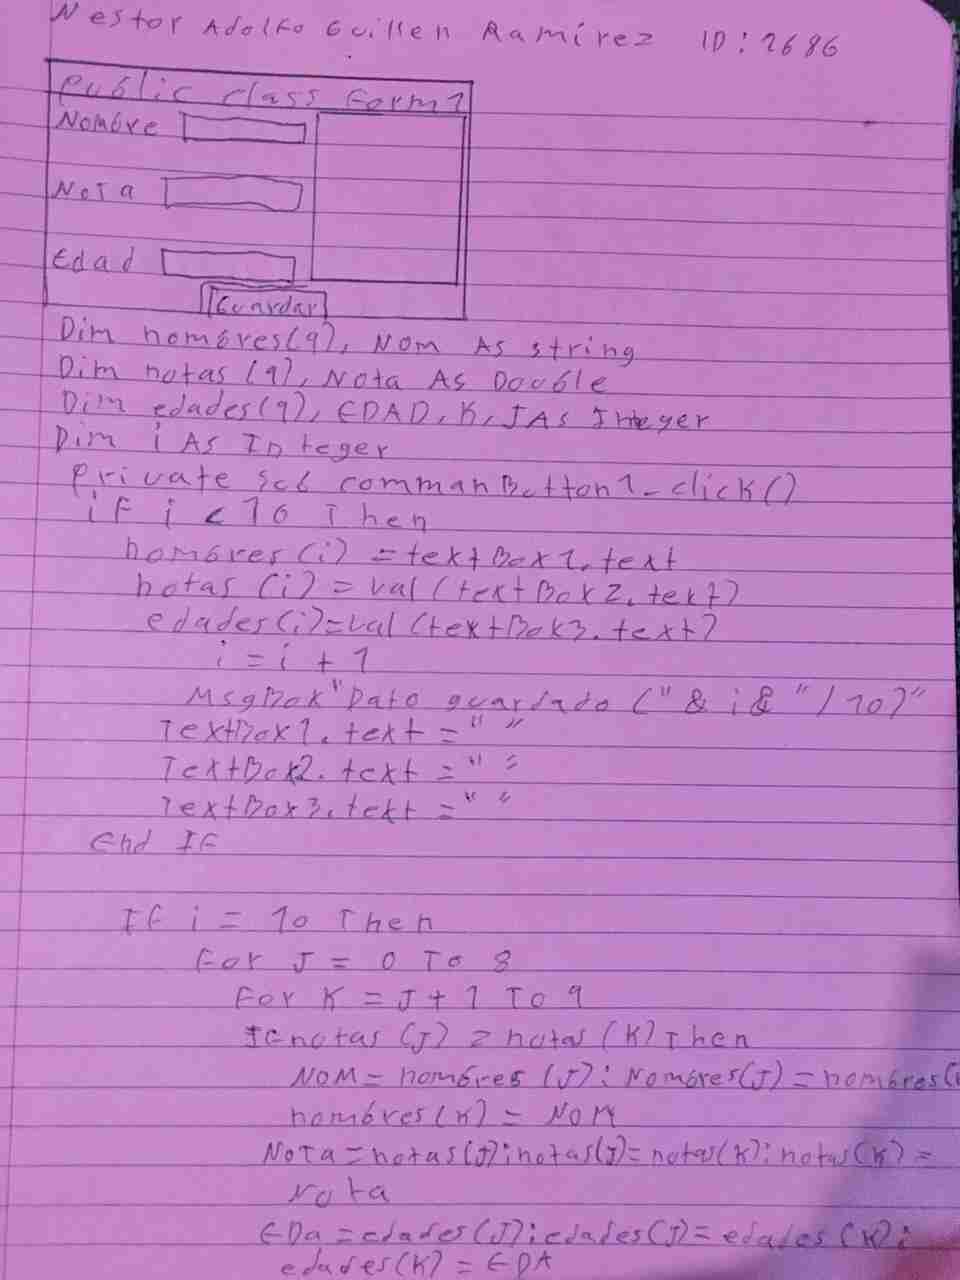 Nestor Adolfo Guillen Ramirez ID: 2686
Public class Form1
Nombre
Nota
Edad
Guardar
Dim nombres(9), NOM As string
Dim notas (9), Nota As Double
Dim edades(9), EDAD, K, J As Integer
Dim i As Integer
Private Sub commanButton1_click()
if i < 10 Then
nombres(i) = textBox1.text
notas (i) = val (textBox2.text)
edades(i)=val (textBox3.text)
i = i + 1
MsgBox "Dato guardado (" & i & "/10)"
TextBox1.text = " "
TextBox2.text = " "
TextBox3.text = " "
End IF
IF i = 10 Then
For J = 0 To 8
For K = J + 1 To 9
IF notas (J) > notas (K) Then
NOM = nombres (J) : Nombres(J) = nombres(
nombres(K) = NOM
Nota = notas(J) : notas(J) = notas(K) : notas(K) =
Nota
EDa = edades(J) : edades(J) = edades (K) :
edades(K) = EDA